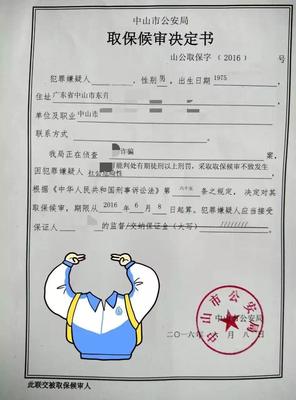 中山市公安局
取保候审决定书
山公取保字 ( 2016 ) 号
犯罪嫌疑人 ,性别 男 ,出生日期 1975
住址 广东省中山市东
单位及职业 中山市
联系方式
我局正在侦查 诈骗 案,
因犯罪嫌疑人 能判处有期徒刑以上刑罚,采取取保候审不致发生
社会危险性
根据《中华人民共和国刑事诉讼法》第 条之规定,决定对其
取保候审,期限从 2016 年 6 月 8 日起算。犯罪嫌疑人应当接受
保证人 的监督/交纳保证金(大写) ////////
中山市公安局
中山市公安局
二〇一六年 六 月 八 日
此联交被取保候审人